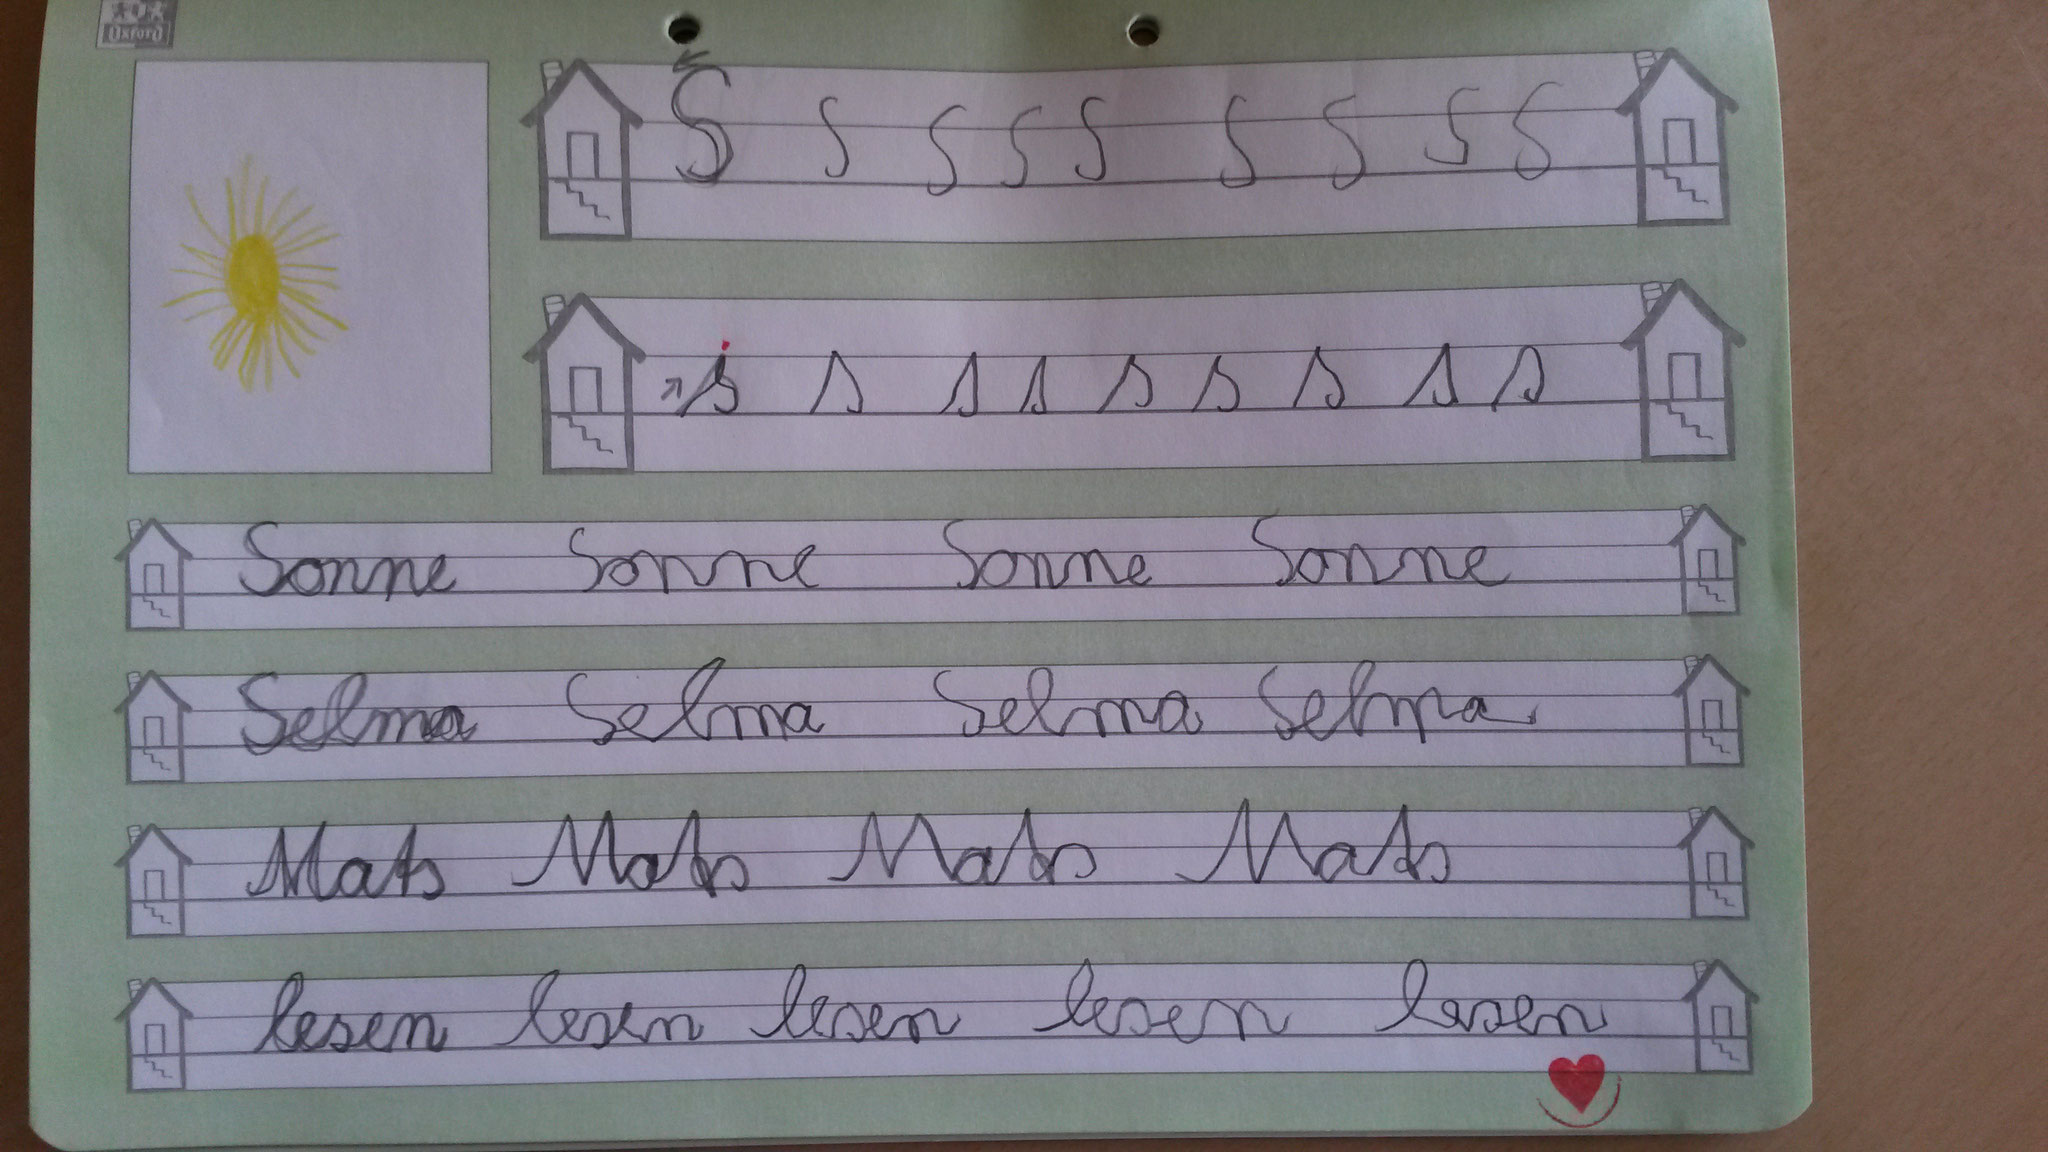 Oxford
S S S S S S S S S
s s s s s s s s s
Sonne Sonne Sonne Sonne
Selma Selma Selma Selma
Mats Mats Mats Mats
lesen lesen lesen lesen lesen